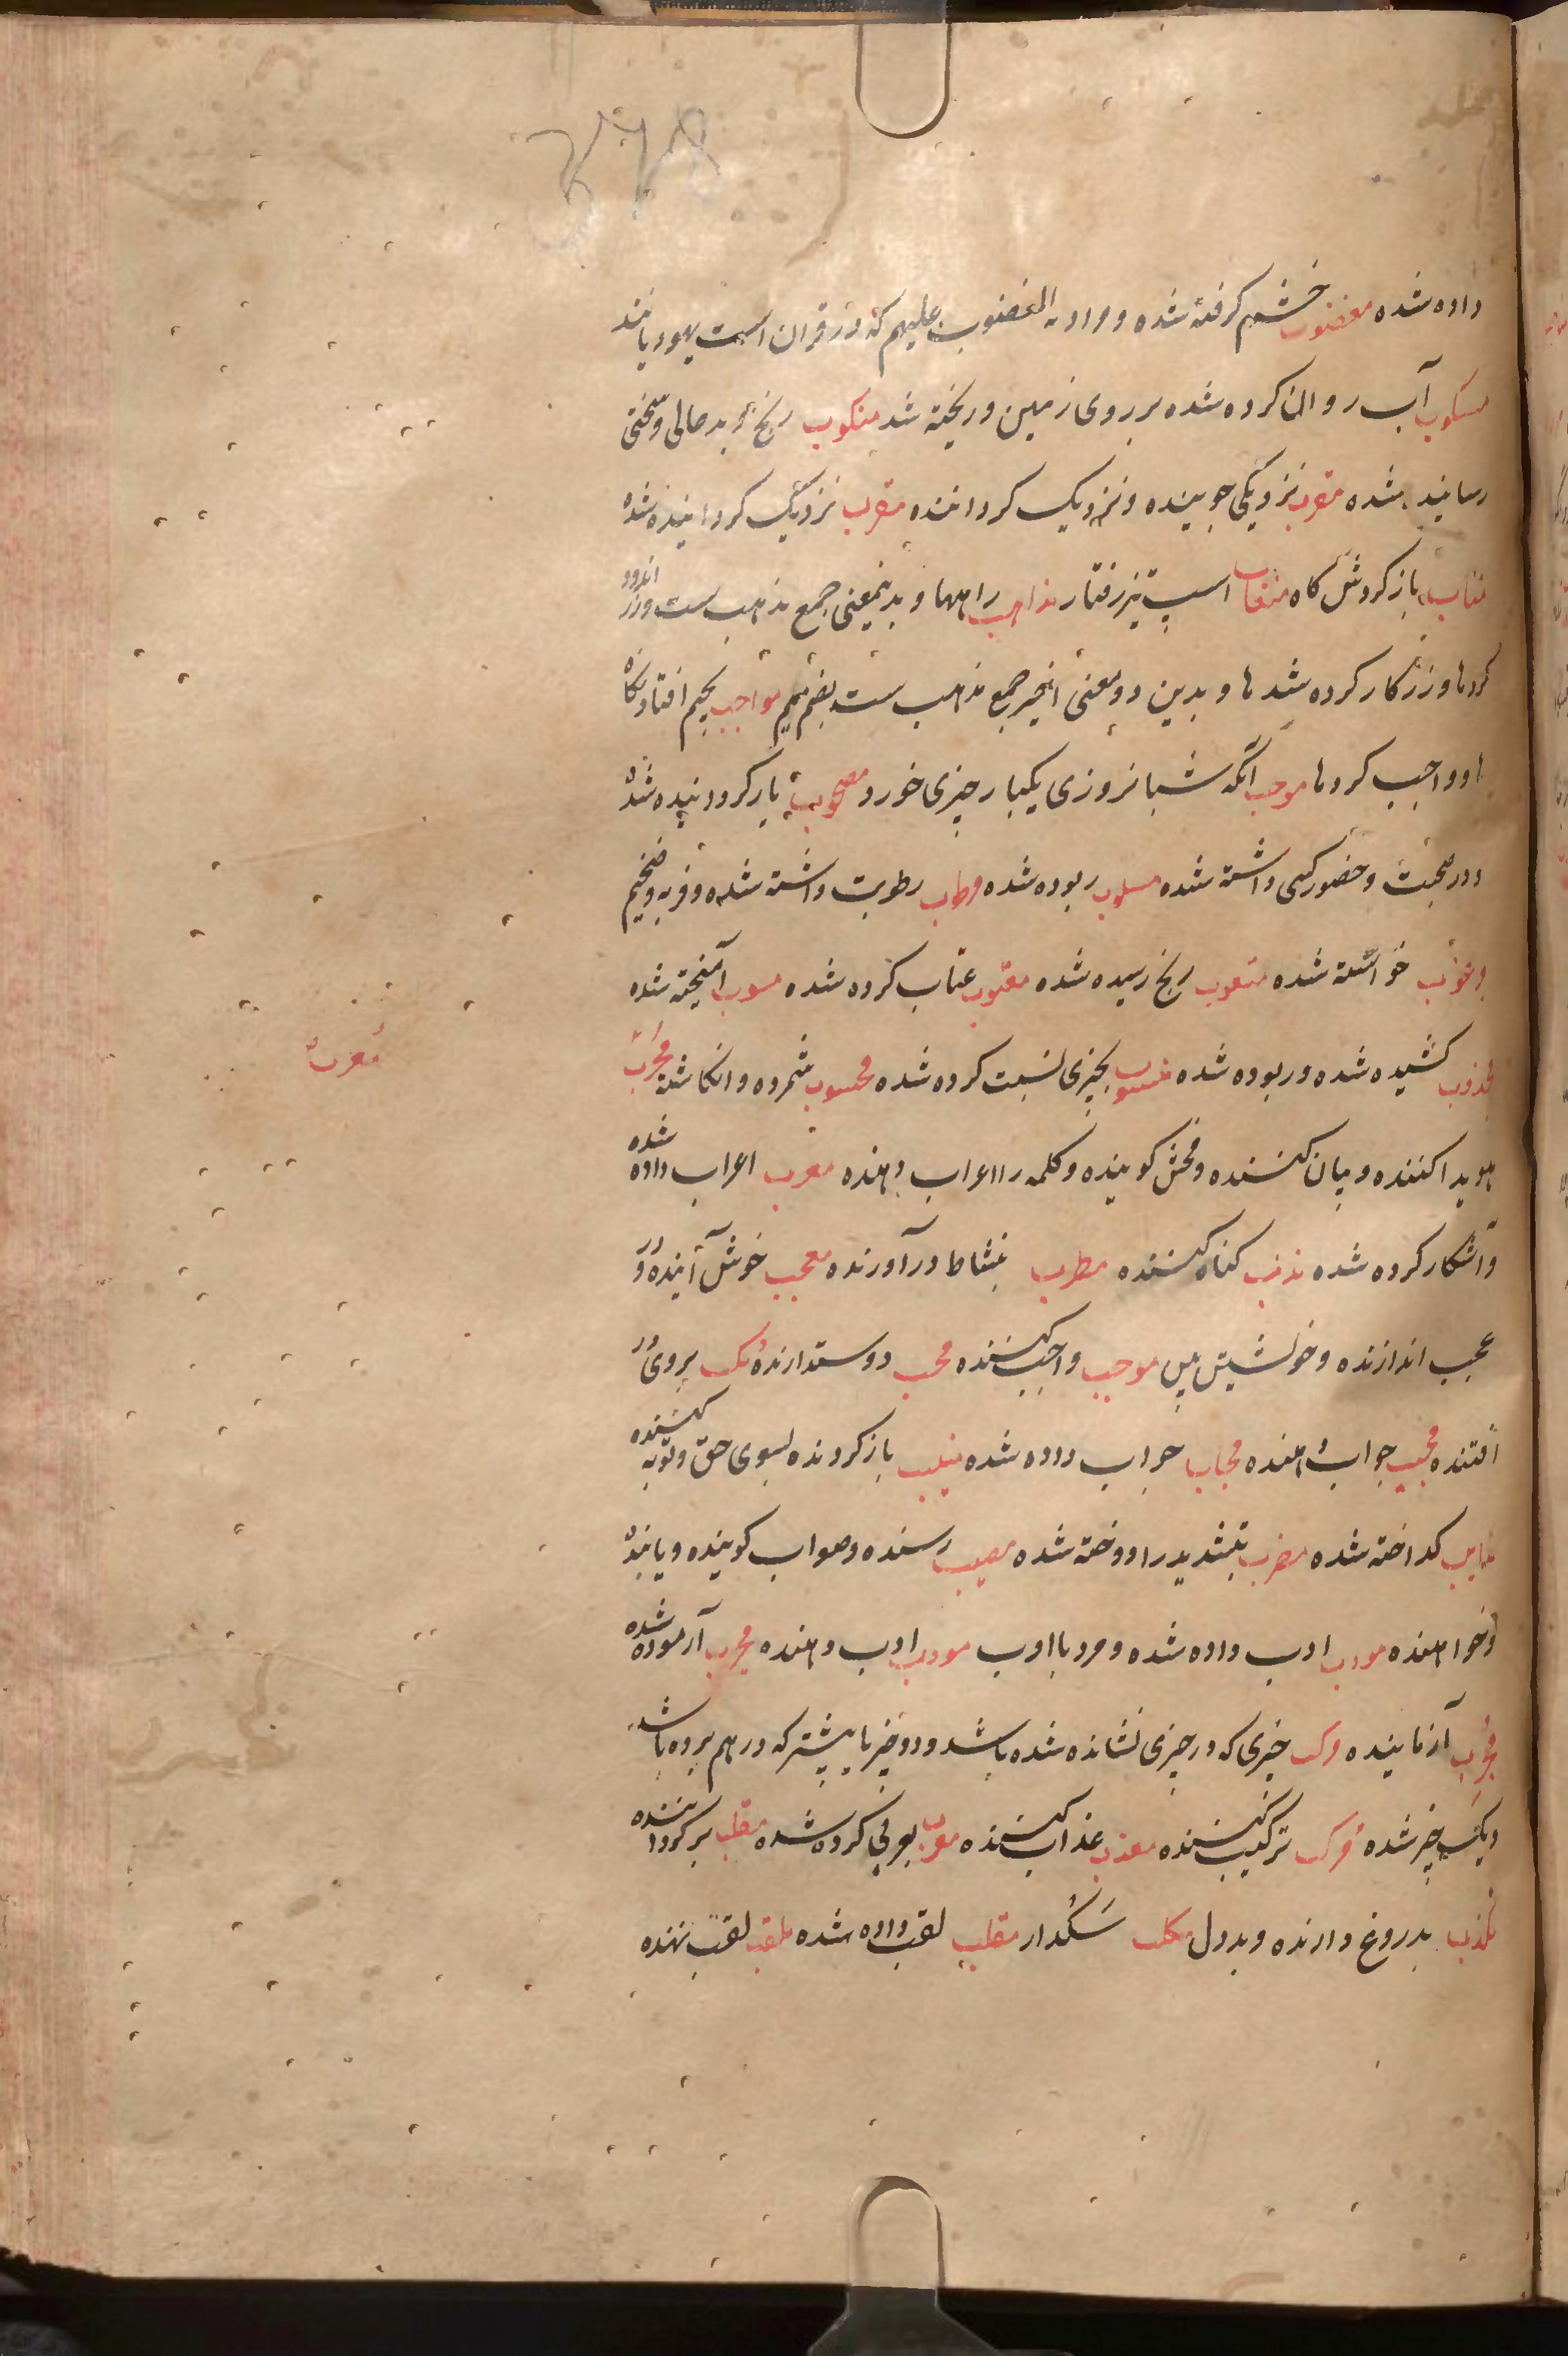 داده شده مغضوب خشم کرفته شده و مراد به المغضوب علیهم که در قران است یهودیانند
مسکوب آب روان کرده شده بر روی زمین و ریخته شد منکوب رنج و بد حالی و سختی
رسانیده شده مقرب نزدیکی جوینده و نزدیک کرداننده مقرب نزدیک کردانیده شده
متاب باز کردش کاه اسپ تیز رفتار مذاهب راهها و بدینمعنی جمع مذهب ست و زر اندود
کردها و زر کار کرده شدها و بدین دو معنی اخیر جمع مذهب ست بضم میم مواجب بجیم افتادنکاه
و واجب کردها موجب آنکه شبانروزی یکبار چیزی خورد مصحوب یار کردانیده شده
و در صحبت و حضور کسی داشته شده مسلوب ربوده شده مرطوب رطوبت داشته شده و فربه و ضخیم
مرغوب خواسته شده متعوب رنج رسیده شده معتوب عتاب کرده شده مشوب آمیخته شده
مجذوب کشیده شده و ربوده شده منسوب بچیزی نسبت کرده شده محسوب شمرده و انکاشته
معرب
هویدا کننده و بیان کننده و فحش کوینده و کلمه را اعراب دهنده معرب اعراب داده شده
و آشکار کرده شده مذنب کناه کننده مطرب بنشاط درآورنده معجب خوش آینده و در
عجب اندازنده و خویشتن بین موجب واجب کننده محب دوستدارنده مکب بروی در
افتنده مجیب جواب دهنده مجاب جواب داده شده منیب باز کردنده بسوی حق و توبه کننده
مذاب کداخته شده مضرب بتشدید را دوخته شده مصیب رسنده و صواب کوینده و یابنده
و خواهنده مودب ادب داده شده و مرد با ادب مودب ادب دهنده مجرب آزموده شده
مجرب آزماینده مرکب چیزی که در چیزی نشانده شده باشد و دو چیز یا بیشتر که در هم برده باشد
و یک چیز شده مرکب ترکیب کننده معذب عذاب کننده معرب بعربی کرده شده مقلب بر کرداننده
مکذب بدروغ دارنده و بددل مکلب سکدار لقب داده شده ملقب لقب نهنده